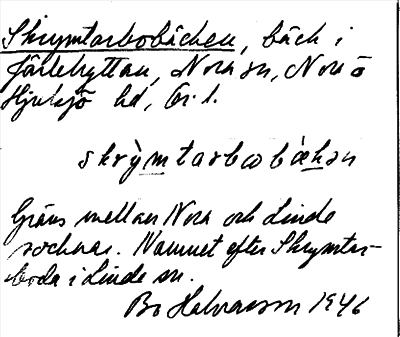 Skrymtarbobäcken, bäck i
Järlehyttan, Nora sn, Nora o
Hjulsjö hd, Ör. l.
skrỳmtarbωbäkən
Gräns mellan Nora och Linde
socknar. Namnet efter Skrymtar-
boda i Linde sn.
Bo Halvarsson 1946